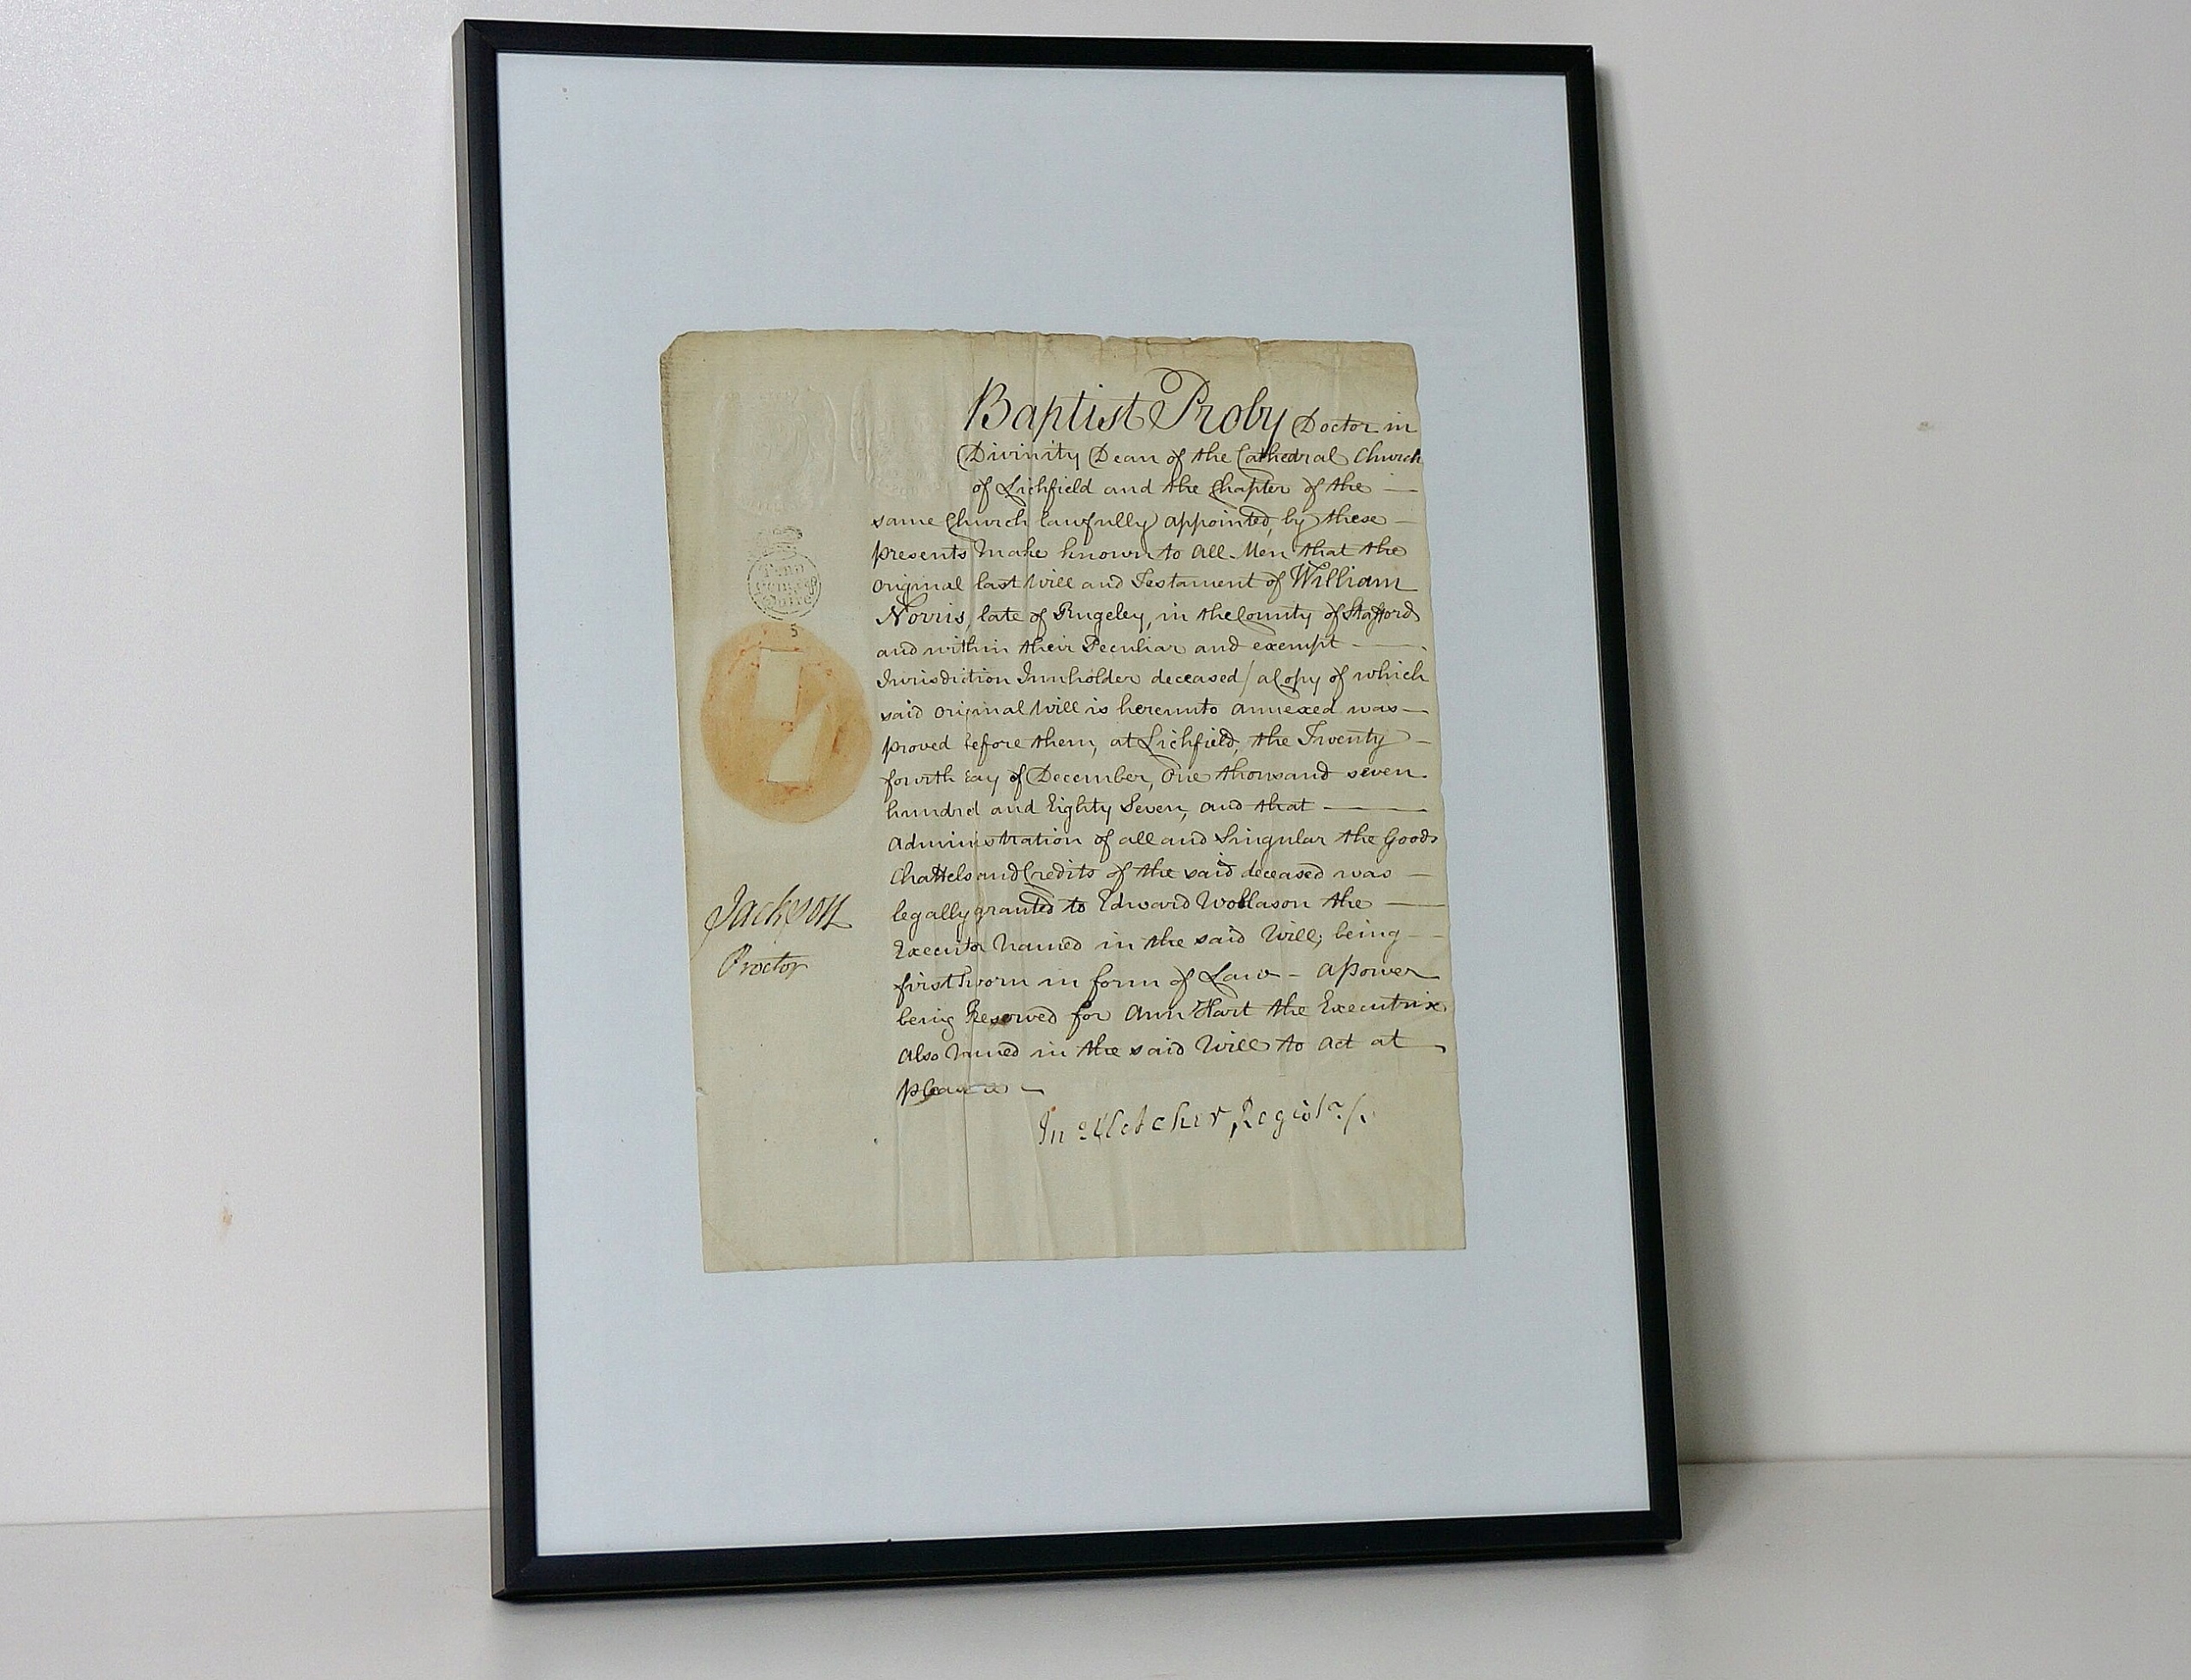 Baptist Proby Doctor in
Divinity Dean of the Cathedral Church
of Lichfield and the Chapter of the
same Church lawfully appointed, by these
presents make known to all Men that the
original last Will and Testament of William
Norris, late of Rugeley, in the County of Stafford
and within their Peculiar and exempt
Jurisdiction Innholder deceased / a Copy of which
said original Will is hereunto annexed was
proved before them, at Lichfield, the Twenty
fourth day of December, One thousand seven
hundred and Eighty Seven, and that
Administration of all and Singular the Goods
Chattels and Credits of the said deceased was
legally granted to Edward Wollason the
Executor Named in the said Will; being
first Sworn in form of Law - a power
being Reserved for Ann Hart the Executrix
also Named in the said Will to Act at
pleasure
Registr.
5
Jackson
Proctor